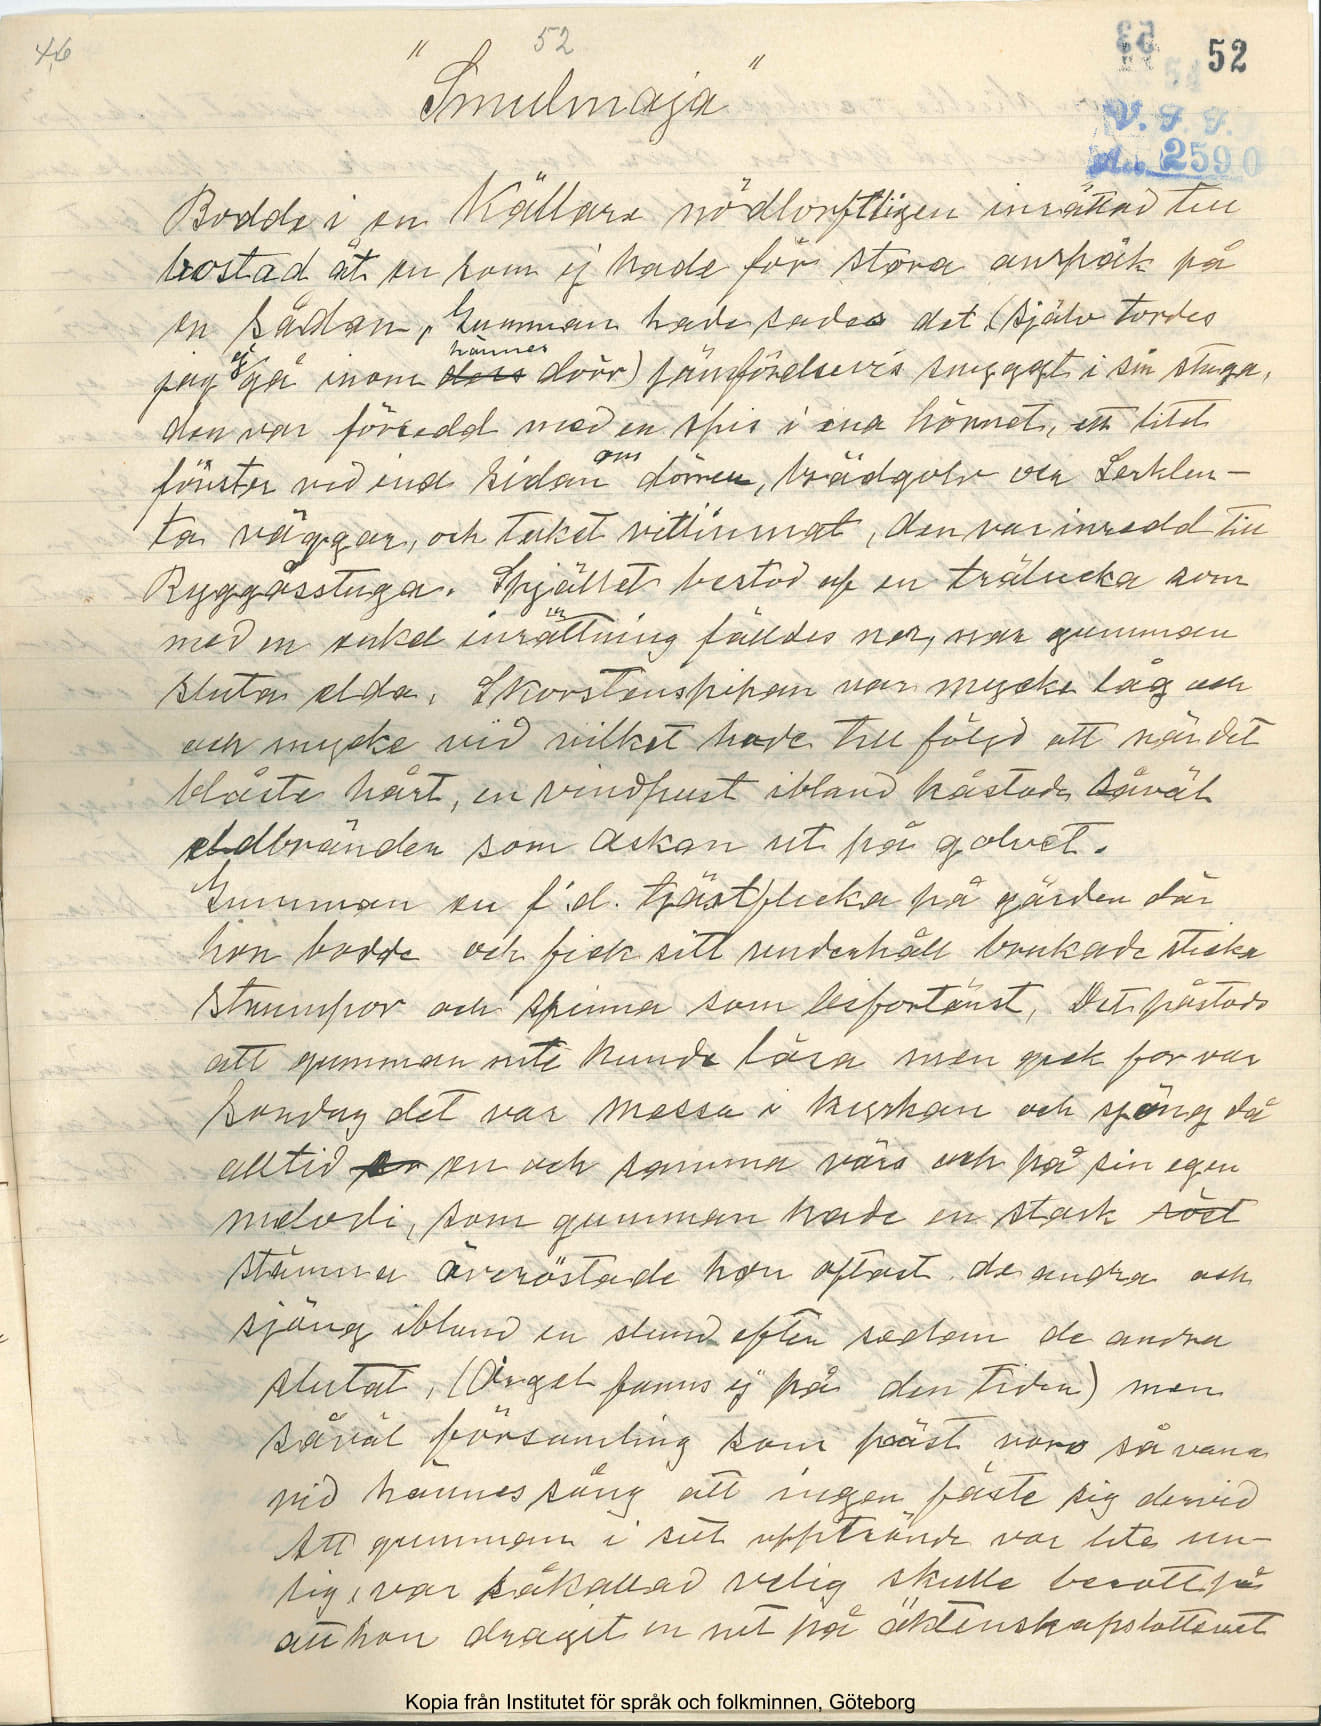 46
52
52
"Smulmaja"
V. F. F.
2590
Bodde i en Källare nödtorftligen inrättad till
bostad åt en som ej hade för stora anspåk på
en sådan, Gumman hade sades det (själv tordes
jag ej gå inom dess hännes dörr) jämförelsevis snyggt i sin stuga,
den var försedd med en spis i ena hörnet, ett litet
fönster vid ena sidan om dörren, trädgolv och Lerklen-
ta väggar, och taket vittlimmat, den var inredd till
Ryggåsstuga. Spjället bestod af en trälucka som
med en enkel inrättning fälldes ner, när gumman
sluta elda. Skorstenspipan var mycke låg och
och mycke vid vilket hade till följd att när det
blåste hårt, en vindpust ibland kåstade såväl
eldbränder som askan ut på golvet.
Gumman en f.d. tjästflicka på gården där
hon bodde och fick sitt underhåll brukade sticka
strumpor och spinna som biförtänst, Det påstods
att gumman inte kunde läsa men gick for var
Sondag det var Massa i kyrkan och sjöng då
alltid en och samma värs och på sin egen
melodi, som gumman hade en stark röst
stämma överröstade hon oftast de andra och
sjöng ibland en stund efter sedan de andra
slutat, (Orgel fanns ej på den tiden) men
såväl församling som präst voro så vana
vid hännes sång att ingen fäste sig dervid
Att gumman i sitt upptrände var lite un-
lig, var såkallad velig skulle berott på
att hon dragit en nit på äktenskapslotteriet
Kopia från Institutet för språk och folkminnen, Göteborg